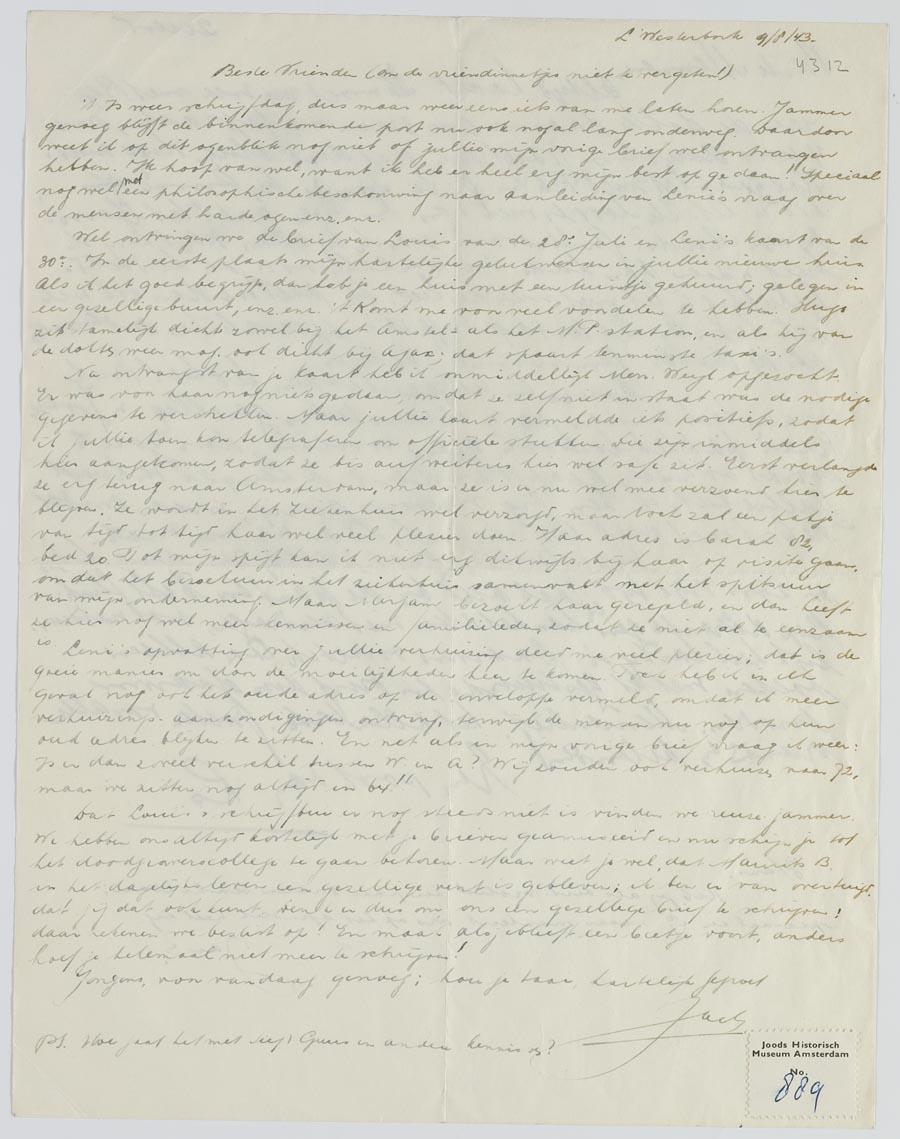 L' Westerbork 9/8/43.
4312
Beste Vrienden (om de vriendinnetjes niet te vergeten!)
't Is weer schrijfdag, dus maar weer eens iets van me laten horen. Jammer
genoeg blijft de binnenkomende post nu ook nogal lang onderweg, waardoor
weet ik op dit ogenblik nog niet of jullie mijn vorige brief wel ontvangen
hebben. Ik hoop van wel, want ik heb er heel erg mijn best op gedaan! Speciaal
nog wel met een philosophische beschouwing naar aanleiding van Lenie's vraag over
de mensen met harde ogen enz, enz.
Wel ontvingen we de brief van Louis van de 28e Juli en Leni's kaart van de
30e. In de eerste plaats mijn hartelijke gelukwensen in jullie nieuwe huis.
Als ik het goed begrijp, dan heb je een huis met een tuintje gehuurd; gelegen in
een gezellige buurt, enz, enz. 't Komt me voor veel voordelen te hebben. Hugo
zit tamelijk dicht zowel bij het Amstel- als het M.P. station, en als hij van
de dokter weer mag, ook dicht bij Ajax; dat spaart tenminste taxi's.
Na ontvangst van je kaart heb ik onmiddellijk Mevr. Weyl opgezocht.
Er was voor haar nog niets gedaan, omdat ze zelf niet in staat was de nodige
gegevens te verschaffen. Maar jullie kaart vermeldde iets positiefs, zodat
ik jullie toen kon telegraferen om officiële stukken. Die zijn inmiddels
hier aangekomen, zodat ze bis auf weiteres hier wel safe zit. Eerst verlangde
ze erg terug naar Amsterdam, maar ze is er nu wel mee verzoend hier te
blijven. Ze wordt in het ziekenhuis wel verzorgd, maar toch zal een pakje
van tijd tot tijd haar wel veel plezier doen. Haar adres is barak 82,
bed 20. Tot mijn spijt kan ik niet erg dikwijls bij haar op visite gaan,
omdat het bezoekuur in het ziekenhuis samenvalt met het spitsuur
van mijn onderneming. Maar Mirjam bezoekt haar geregeld, en dan heeft
ze hier nog wel meer kennissen en familieleden, zodat ze niet al te eenzaam
is.
Leni's opvatting over jullie verhuizing deed me veel plezier; dat is de
goeie manier om door de moeilijkheden heen te komen. Toch heb ik in elk
geval nog ook het oude adres op de enveloppe vermeld, omdat ik meer
verhuizings-aankondigingen ontving, terwijl de mensen nu nog op hun
oud adres blijken te zitten. En net als in mijn vorige brief vraag ik weer:
Is er dan zoveel verschil tussen W. en A? Wij zouden ook verhuizen naar 72,
maar we zitten nog altijd in 64!!
Dat Louis's schrijfbui er nog steeds niet is vinden we reuze jammer.
We hebben ons altijd kostelijk met je brieven geamuseerd en nu schijn je tot
het doodgraverscollege te gaan behoren. Maar weet je wel, dat Maurits B.
in het dagelijks leven een gezellige vent is gebleven; ik ben er van overtuigd,
dat jij dat ook kunt, om ons een gezellige brief te schrijven!
daar rekenen we beslist op! En maar alsjeblieft een beetje voort, anders
hoef je helemaal niet meer te schrijven!
Jongens, voor vandaag genoeg; hou je taai, hartelijk gegroet
Jack
PS. Hoe gaat het met Guus en andere kennissen?
Joods Historisch
Museum Amsterdam
No.
889